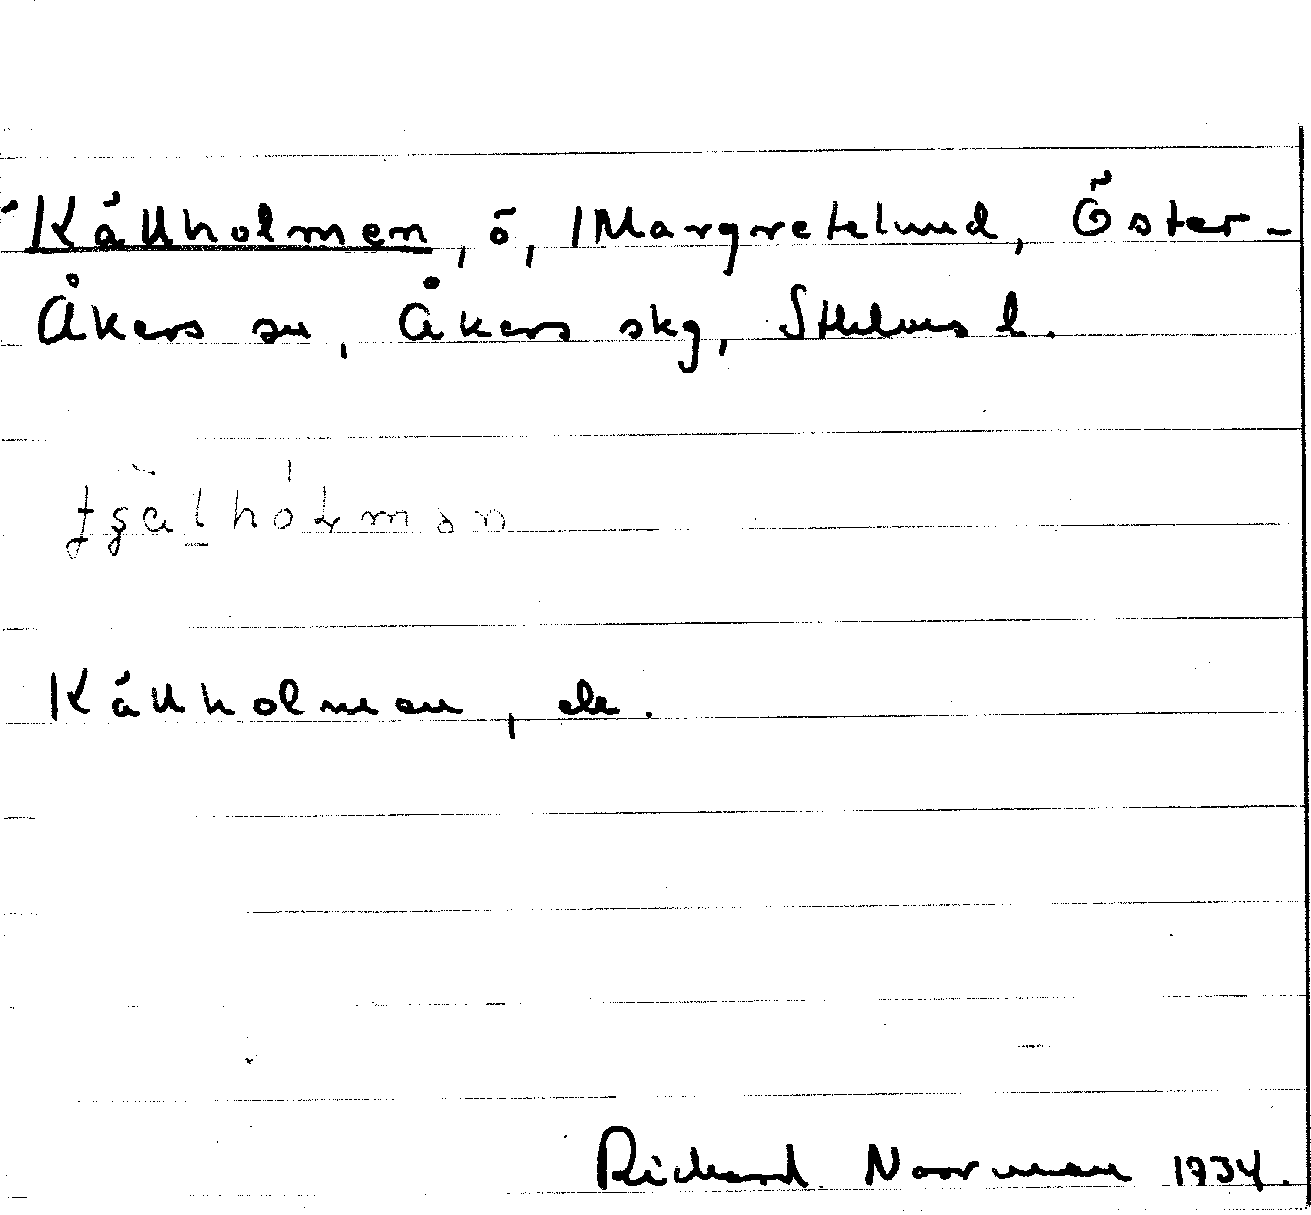 Källholmen, ö, Margretelund, Öster-
Åkers sn, Åkers skg, Sthlms l.
Källholmen, ek.
Richard Norrman 1934.